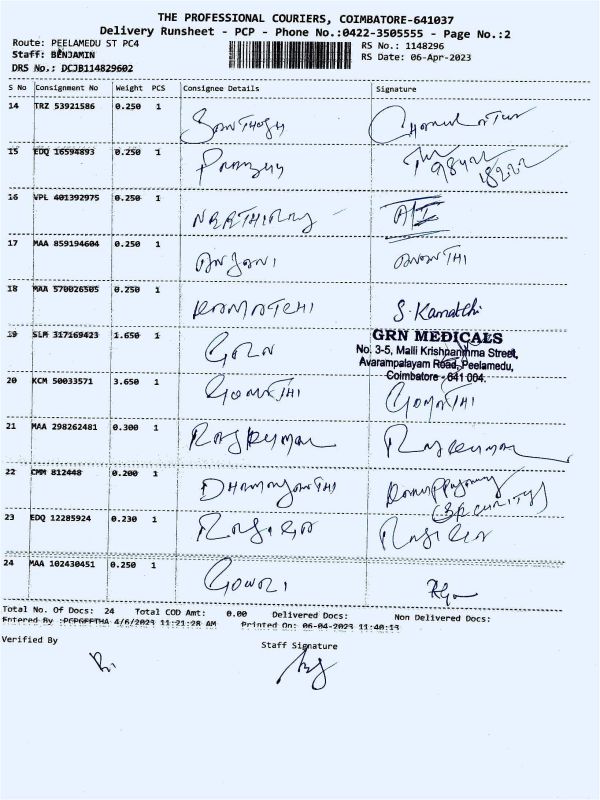 THE PROFESSIONAL COURIERS, COIMBATORE-641037
Delivery Runsheet - PCP - Phone No.:0422-3505555 - Page No.:2
Route: PEELAMEDU ST PC4 RS No.: 1148296
Staff: BENJAMIN RS Date: 06-Apr-2023
DRS No.: DCJB114829602
S No Consignment No Weight PCS Consignee Details Signature
14 TRZ 53921586 0.250 1 SANTHOSH
15 EDQ 16594893 0.250 1
16 VPL 401392975 0.250 1
17 MAA 859194604 0.250 1 ANJANI ANANTHI
18 MAA 570026505 0.250 1 KAMATCHI S. Kamatchi
19 SLM 317169423 1.650 1
GRN MEDICALS
No. 3-5, Malli Krishnamma Street,
Avarampalayam Road, Peelamedu,
Coimbatore - 641 004.
20 KCM 50033571 3.650 1 GOMATHI GOMATHI
21 MAA 298262481 0.300 1 RAJKUMAR RAJKUMAR
22 CMM 812448 0.200 1 DHAMAYANTHI
(SECURITY)
23 EDQ 12285924 0.230 1
24 MAA 102430451 0.250 1 GOWRI
Total No. Of Docs: 24 Total COD Amt: 0.00 Delivered Docs: Non Delivered Docs:
Entered By :PCPGEETHA 4/6/2023 11:21:28 AM Printed On: 06-04-2023 11:40:13
Verified By Staff Signature